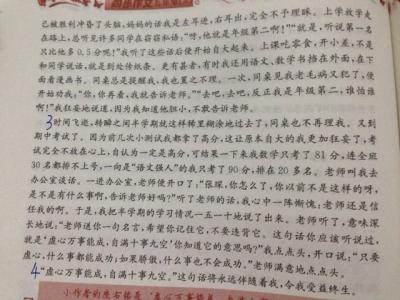 已被胜利冲昏了头脑，妈妈的话我是左耳进，右耳出，完全不予理睬。上学放学走
在路上，总听见许多同学在窃窃私语：“呀，他就是年级第二啊！”“就是，听说第一名
只比他多0.5分呢！”我听了这些话后便开始自大起来。上课吃零食，开小差，不是
和同学说话，就是到处传纸条。更有甚者，有时我还用语文、数学书挡在外面，在下
面看漫画书。同桌总是提醒我，我也置之不理。一次，同桌见我老毛病又犯了，便
开始劝我：“你，你再看，我就告诉老师。”“去吧，去吧，反正我是年级第二，谁怕谁
啊！”我狂妄地说道，因为我知道他胆小，不敢告诉老师。
3时间飞逝，转瞬之间半学期就这样稀里糊涂地过去了，同桌也不再理我。又到
期中考试了。因为前几次小测试我都拿了高分，这让原本自大的我更加狂妄了，考
试完全不放在心上，自认为一定是高分，可结果一下来我数学只考了81分，连全班
30名都排不上号，一向是“语文强人”的我只考了90分，排在20多名。老师叫我去
办公室谈话。一进办公室，老师便开口了，“张琛，你怎么了，你以前不是这样的呀，
是不是有什么事啊，告诉老师好吗？”听了老师的话，我心中一阵惭愧，老师还是信
任我的啊。于是，我把半学期的学习情况一五一十地说了出来。老师听了，意味深
长地说，“老师送你一句名言，希望你记住它，不要违背它。这句话你应该听说过，
就是‘虚心万事能成，自满十事九空。’你知道它的意思吗？”我点点头，开口说，“只要
虚心，什么事都能成功，如果骄傲，什么事也不会成功。”老师满意地点点头。
4“虚心万事能成，自满十事九空。”这句话将永远伴随着我，令我受益终生。
小作者的座右铭是“虚心万事能